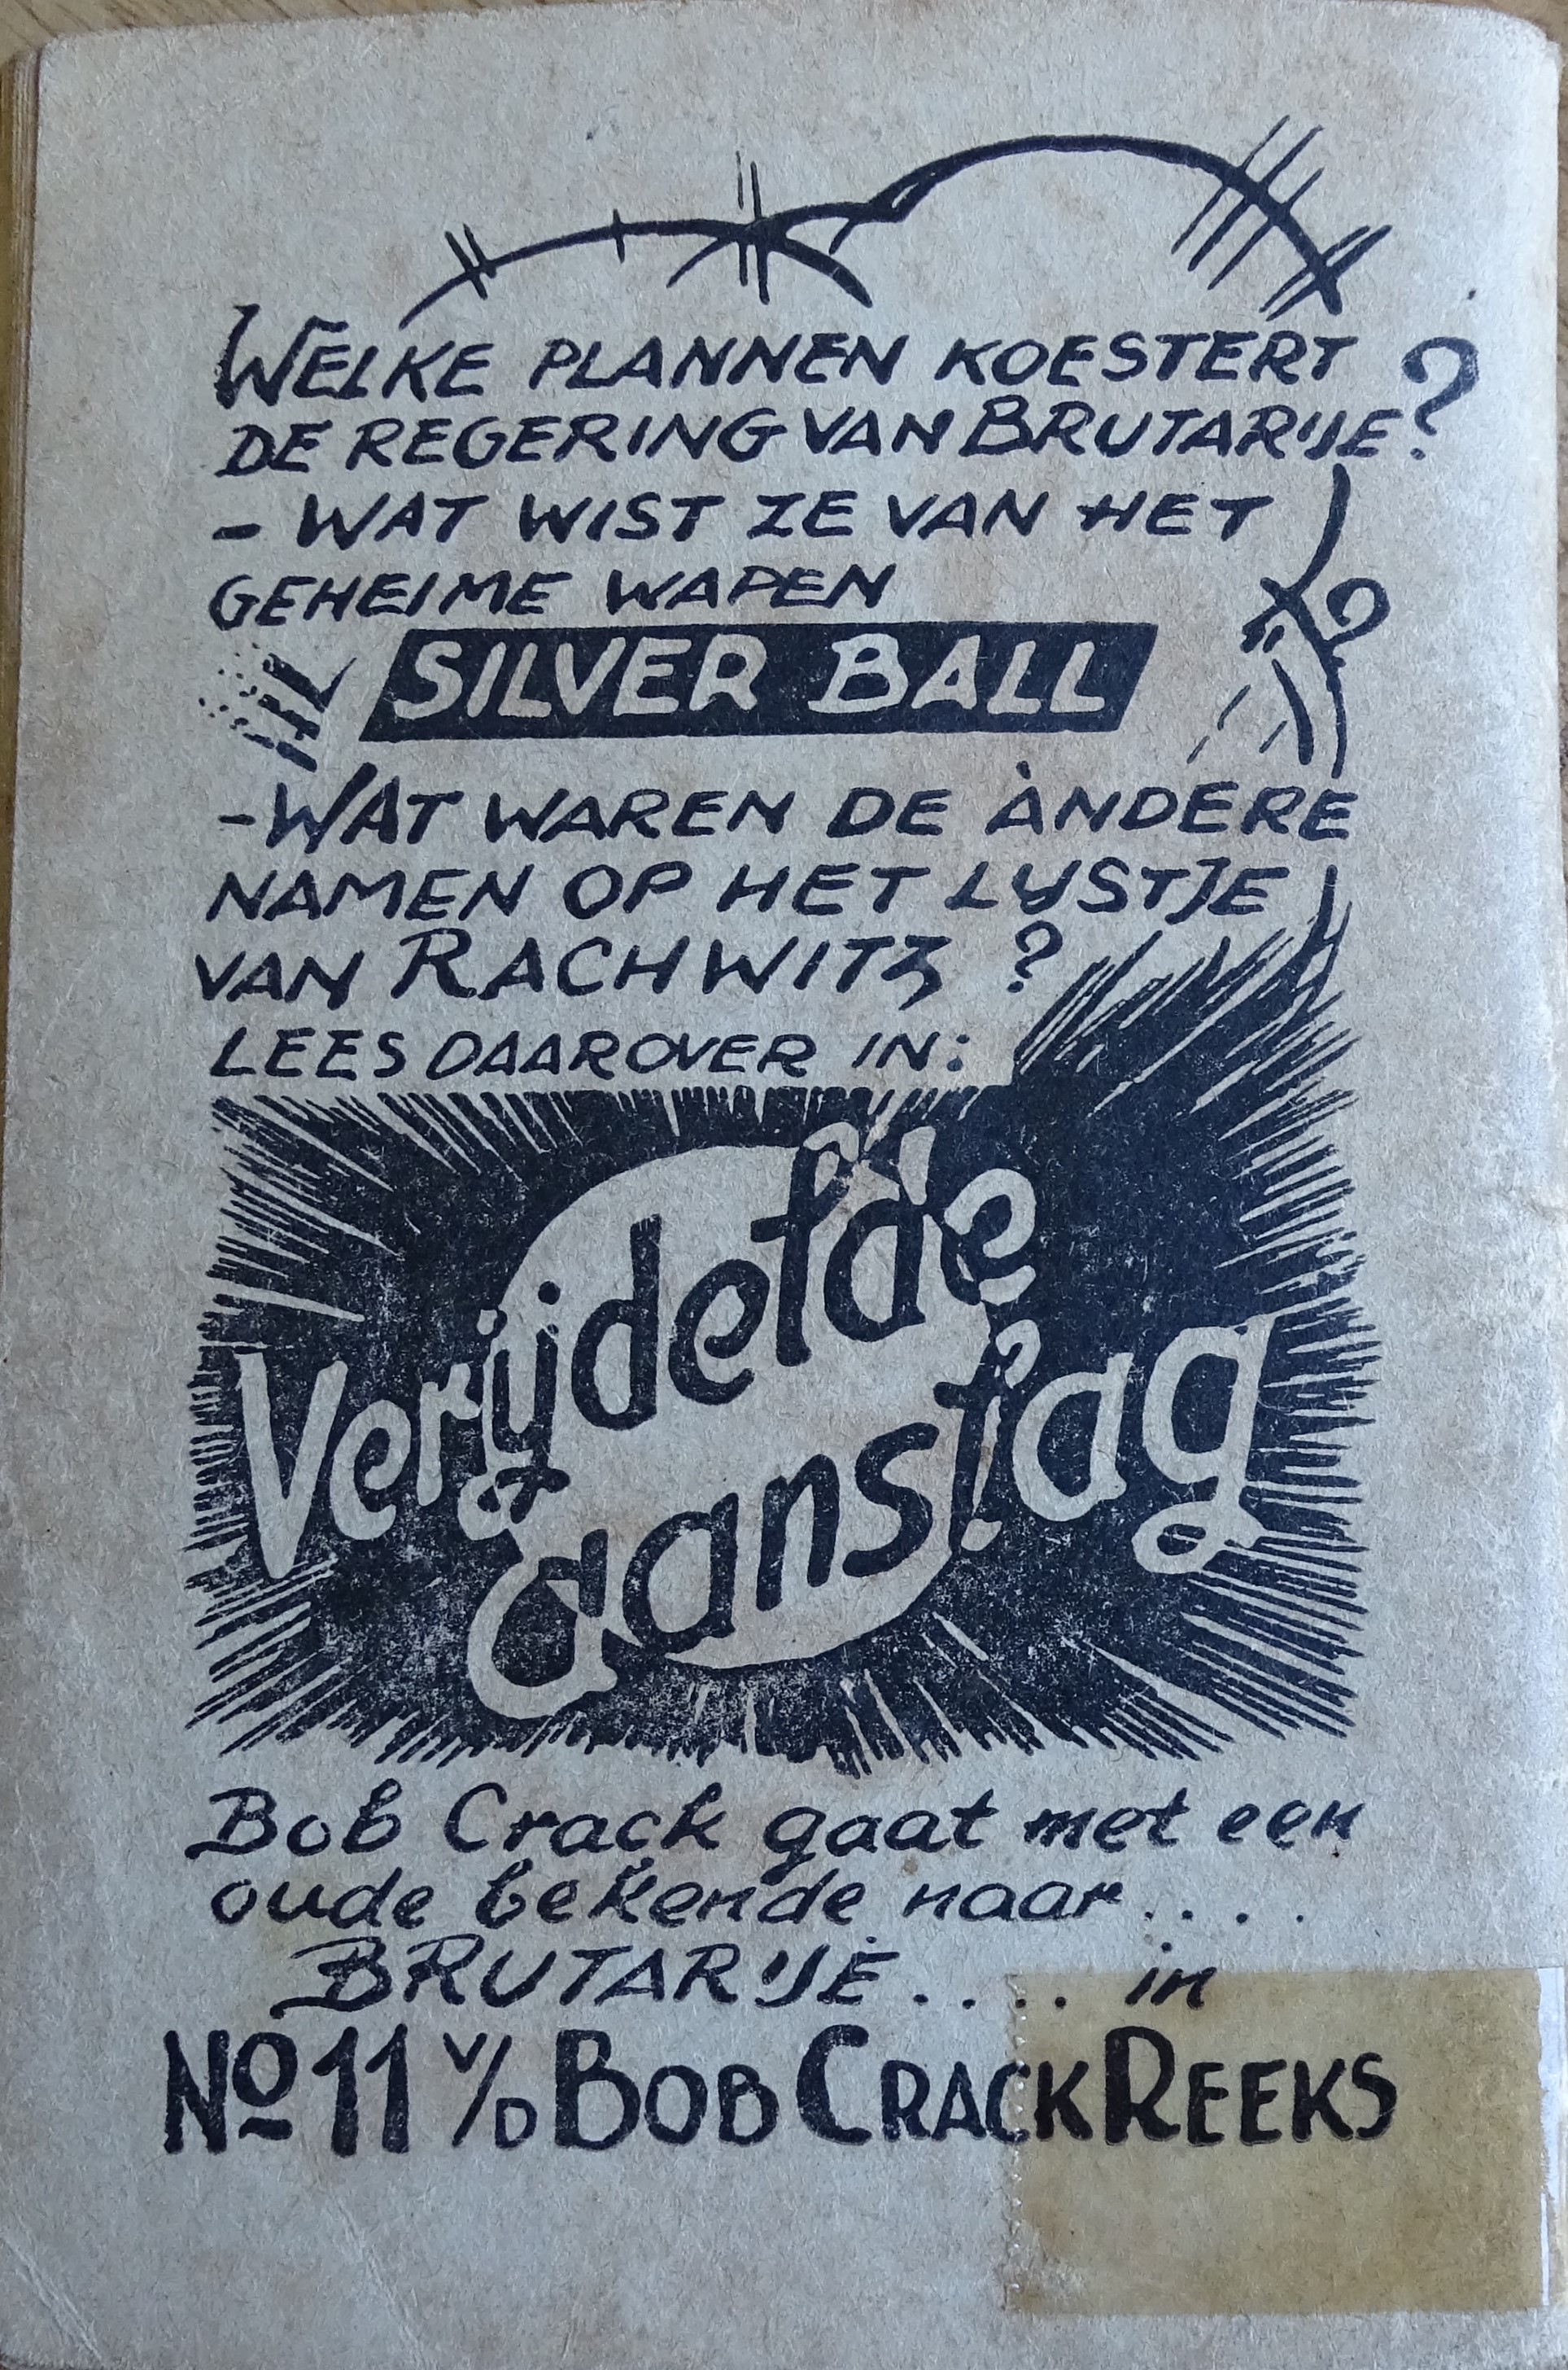 WELKE PLANNEN KOESTERT
DE REGERING VAN BRUTARIJE?
- WAT WIST ZE VAN HET
GEHEIME WAPEN
SILVER BALL
- WAT WAREN DE ÀNDERE
NAMEN OP HET LYSTJE
VAN RACHWITZ ?
LEES DAAROVER IN:
Verijdelde
aanslag
Bob Crack gaat met een
oude bekende naar....
BRUTARIJE.... in
No 11 v/D BOB CRACK REEKS